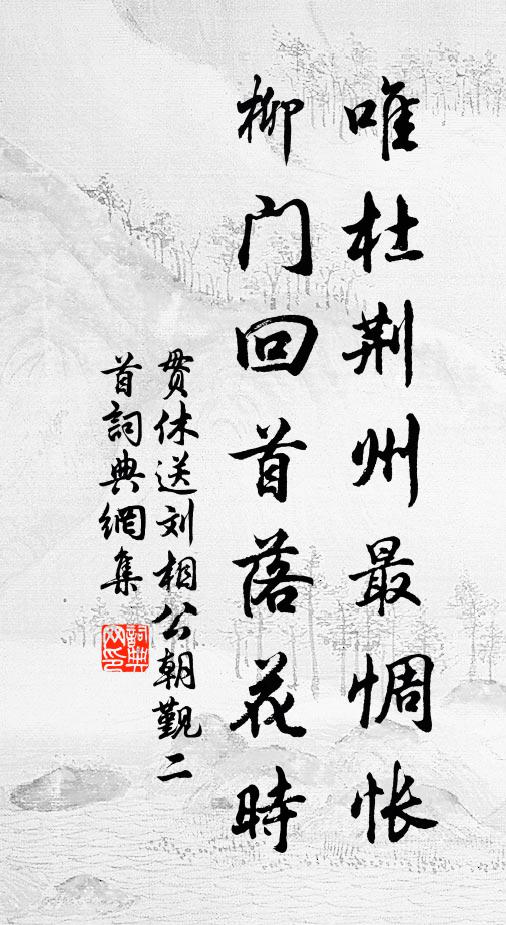 唯杜荆州最惆怅
柳门回首落花時
贯休送刘相公朝觐二
首詞典網集